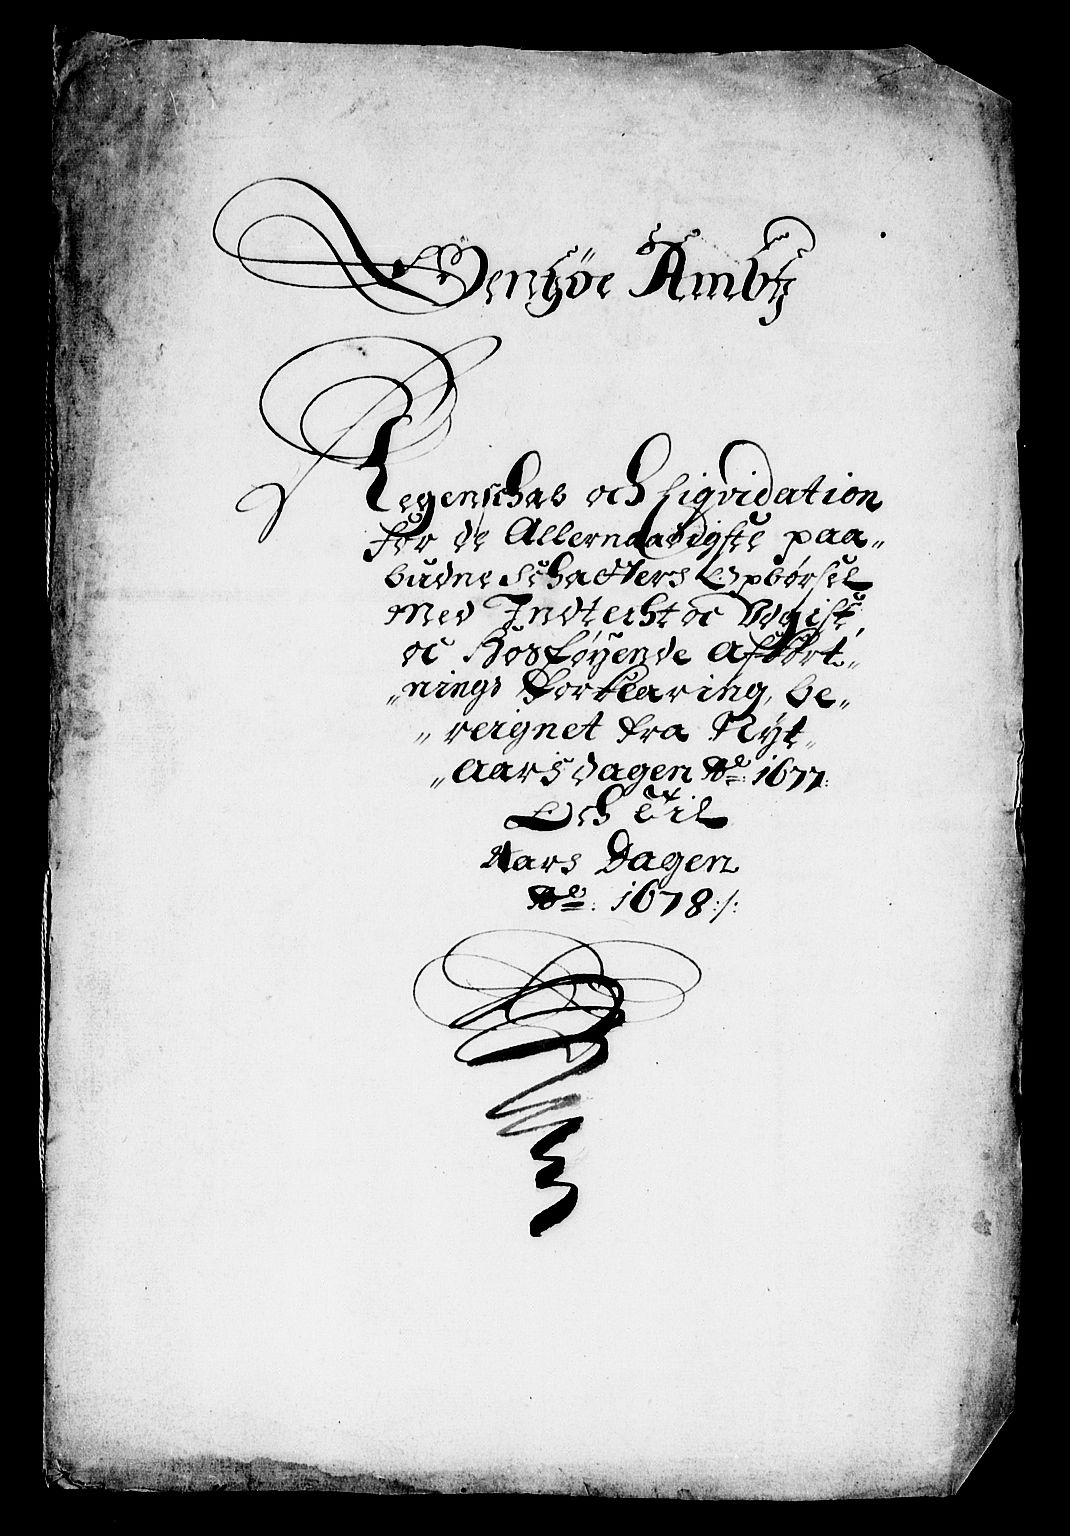 Wenhøe Ambtz
Regenschab och Liqvidation
for de Allernaadigste paa„
budne Schatters Opbørsel
Med Indtecht oc Vdgift,
oc Hosføyende Afkort„
„nings Forklaring, be„
„reignet fra Nyt„
„aars dagen Ao: 1677:
Och Til
Aars Dagen
Ao: 1678:/: